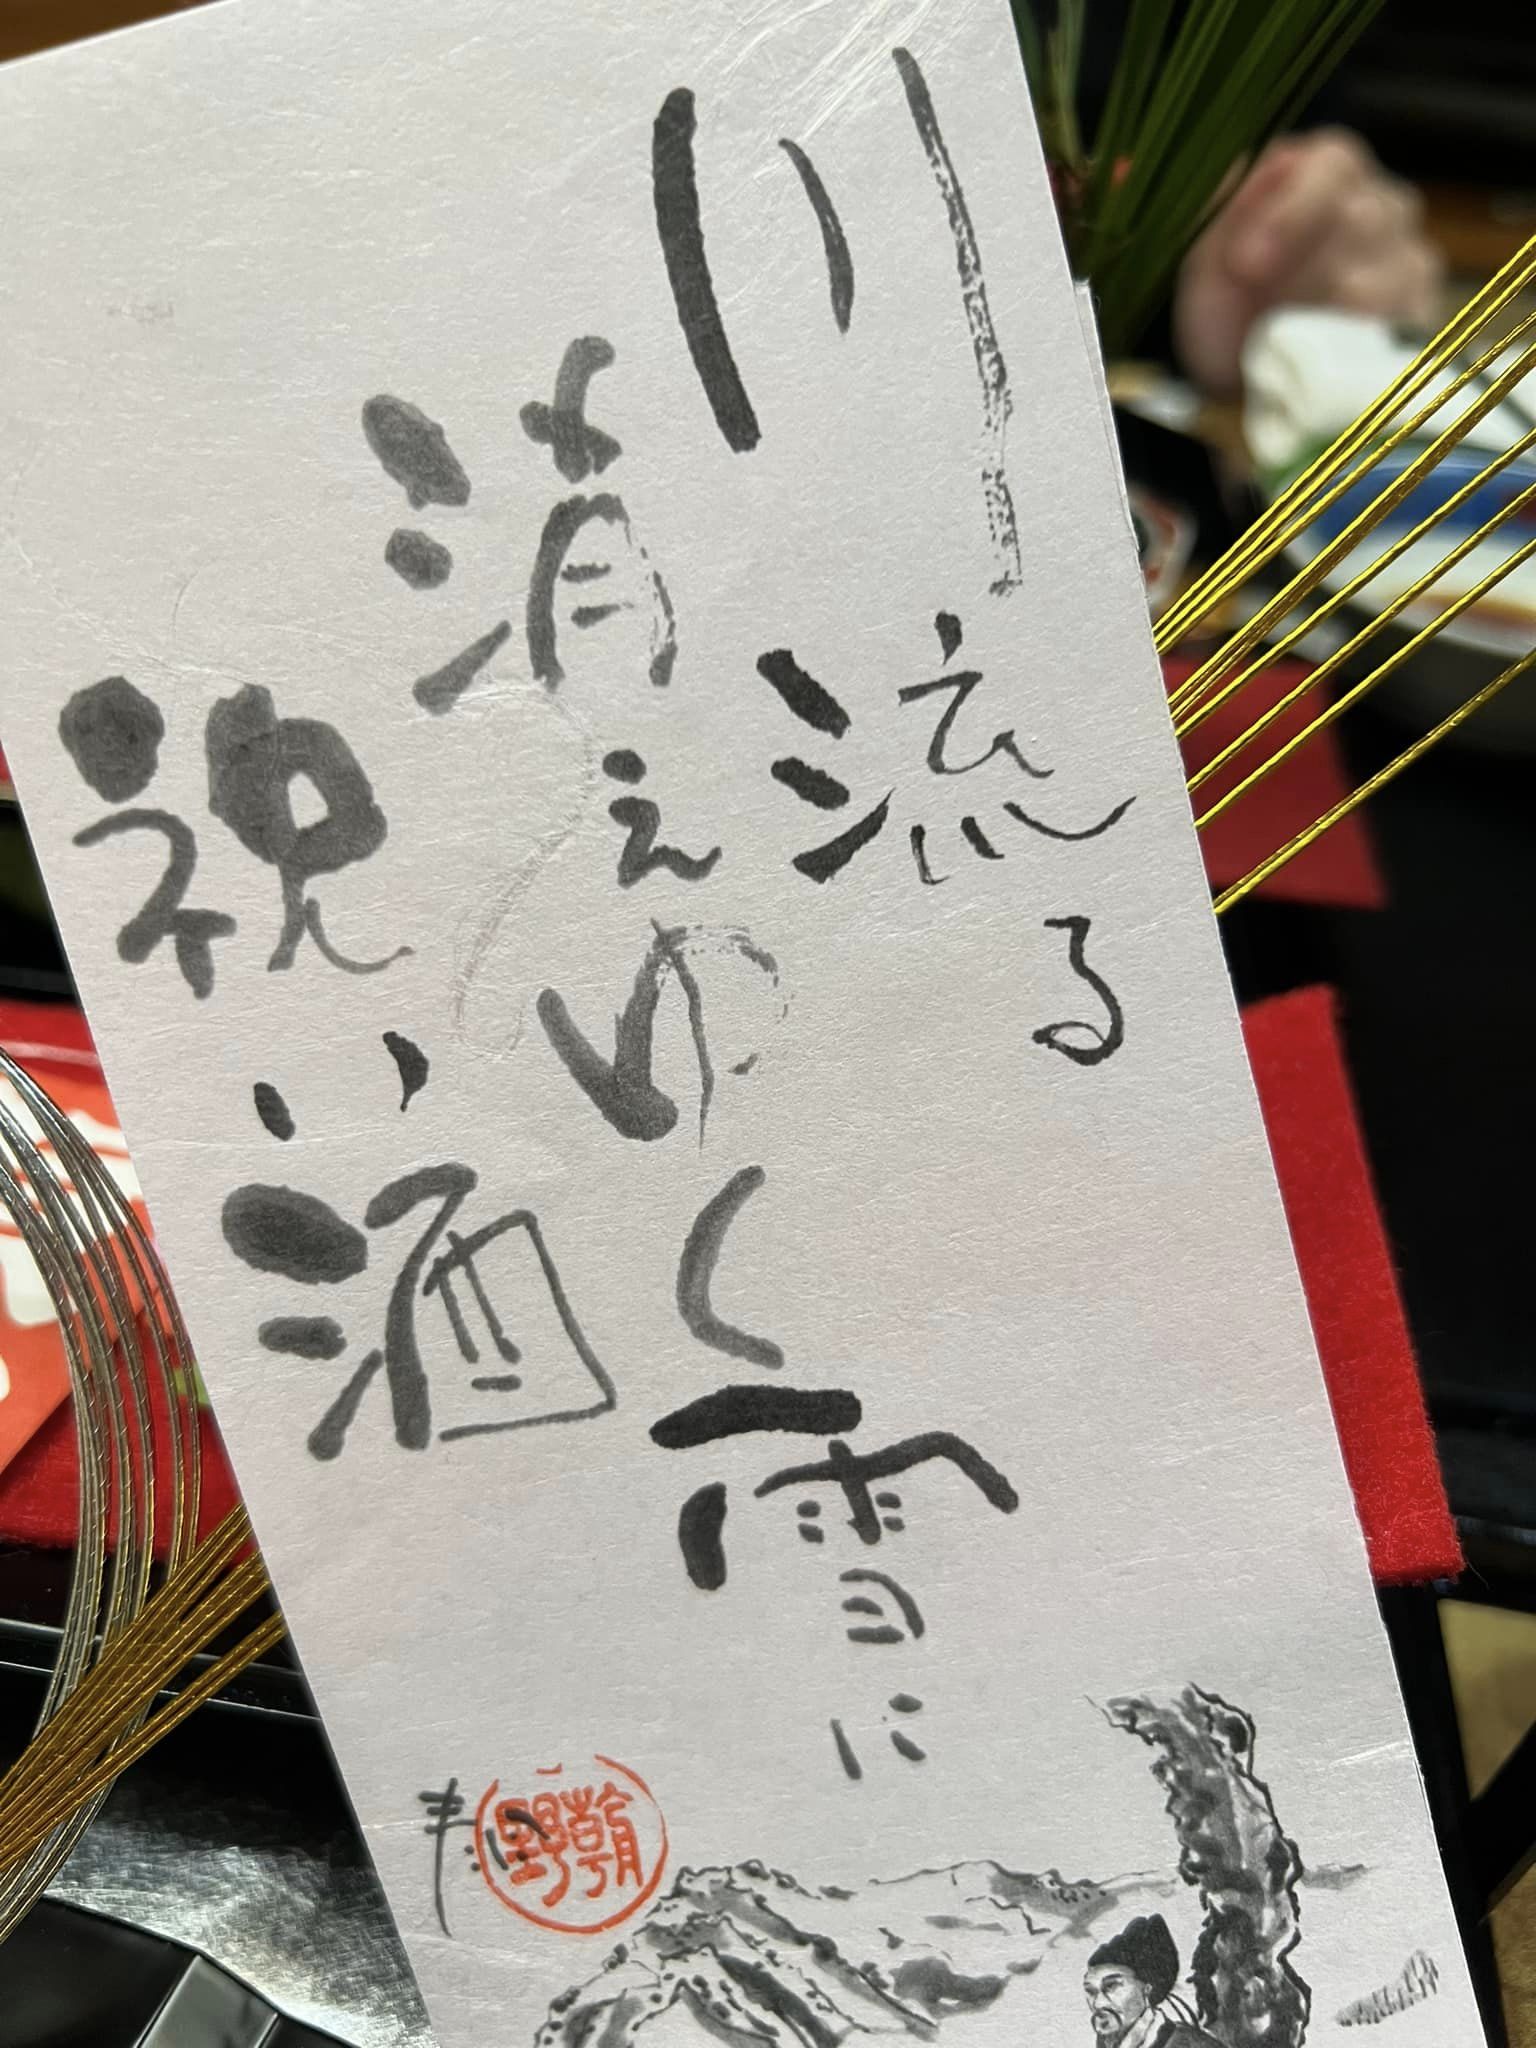 川流る
消えゆく雪に
祝い酒
朝野